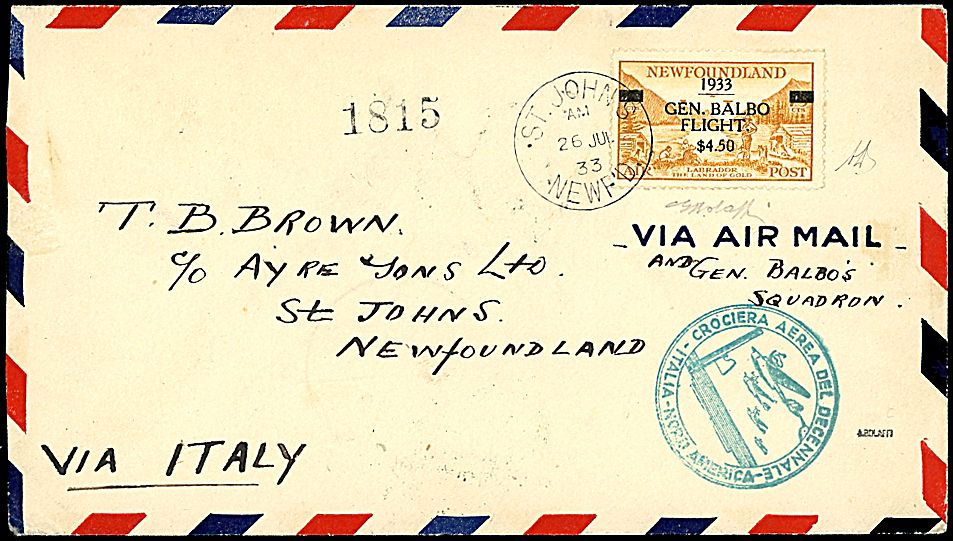 1815
ST. JOHN'S
AM
26 JUL
33
NEWF'D.
NEWFOUNDLAND
1933
GEN. BALBO
FLIGHT.
$4.50
LABRADOR
THE LAND OF GOLD
AIR POST
T. B. BROWN.
c/o AYRE & SONS LTD.
St JOHNS.
NEWFOUNDLAND
VIA AIR MAIL
AND GEN. BALBO'S
SQUADRON.
CROCIERA AEREA DEL DECENNALE - ITALIA - NORD AMERICA -
VIA ITALY